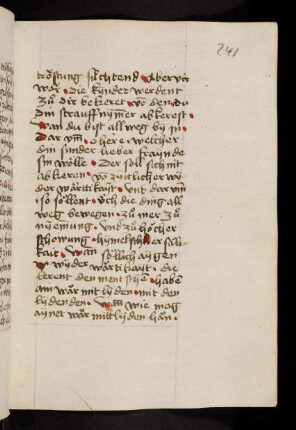 241
tröstung suchtend · Aber vor
war · die kynder werdent
zu dir bekeret · vō den du
din strauff nymer abkerest ·
wan du bist all weg by jn ·
Dar vm̄ · O herre · welcher
din sinder lieber fraynde
sin wölle · Der soll sich nit
abkeren · vō zittlicher wy
der wärtikayt · vnt dar vm̄
so sollent · v̈ch die ding all
weg bewegen · zu mer zů
nyemung · vnd zu höcher
schowung · hymelscher sälli
kait · Wan söllich aygen
wyder wärtikayt · die
lerent den mentschē · haben
ain wār mit lyden · mit den
lydenden · Wan wie mag
ayner wār mittlyden han ·